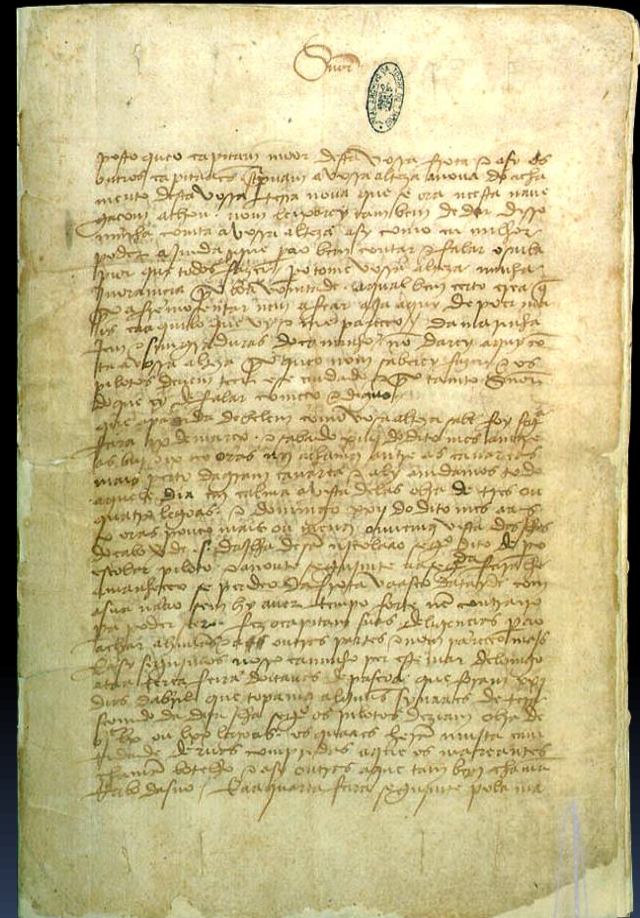 Snõr
posto queo capitam moor desta vossa frota e asy os
outros capitaães screpuam avossa alteza anoua do acha
mento desta vossa terra noua que se ora neesta naue
gaçom achou. nom leixarey tambem de dar disso
minha comta avossa alteza asy como eu milhor
poder ajmda que pera o bem contar e falar o saiba
pior que todos fazer. pero tome vossa alteza minha
jnoramçia por boa vomtade. aqual bem çerto crea q̃
por afremosentar nem afear aja aquy de poer ma
is caaquilo que vy e me pareçeo / damarinha
jem e simgraduras do caminho nõ darey aquy cõ
ta avossa alteza porque o nom saberey fazer e os
pilotos deuem teer ese cuidado e por tanto Snõr
do que ey de falar começo e diguo /
que apartida de belem como vossa alteza sabe foy segª
feira ix de março. e sabado xiiij do dito mes amtre
as biij e ix oras nos achamos amtre as canareas
mais perto da gram canarea e aly amdamos todo
aquele dia em calma avista delas obra de tres ou
quatro legoas. e domingo xxij do dito mes aas
x oras pouco mais ou menos ouuemos vista das jlhas
do cabo verde .s. dajlha de sã njcolaao segº dito de pº
escolar piloto. e anoute segujmte aasegda feira lhe
amanheçeo se perdeo da frota vaasco datayde com
asua naao sem hy auer tempo forte nẽ contrairo
pera poder seer. fez ocapitam suas deligençias perao
achar ahuũas e outras partes e nom pareçeo majs
E asy segujmos nosso caminho per este mar delomgo
ataa terça feira doitauas de pascoa que foram xxj
dias dabril que topamos alguũs synaaes de tera
seemdo da dita jlha segº os pilotos deziam obra de
bjc lx ou lxx legoas. os quaaes herã mujta cam
tidade deruas compridas aque os mareantes
chamã botelho e asy outras aque tambem chamã
rrabo dasno / E aaquarta feira segujmte pola ma